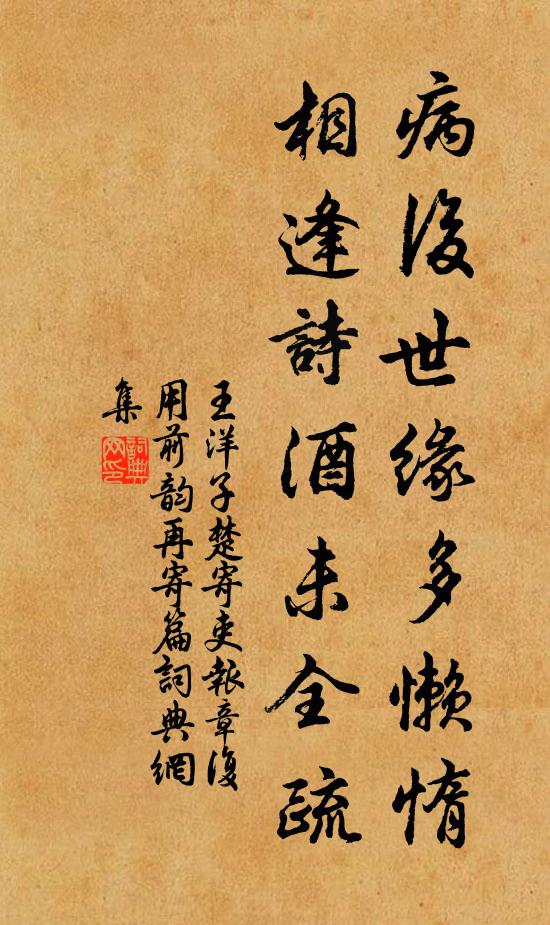 病後世缘多懒惰
相逢詩酒未全疏
王洋子楚寄吏報章復
用前韵再寄篇詞典網
集
詞典網印